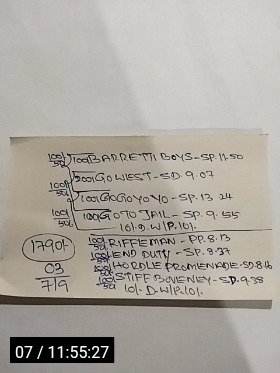 100/50 100/BARRETTI BOYS-SP.11.50
200/GO WEST-SD.9.07
100/50 100/GOGOYOYO-SP.13.24
100/50 100/GO TO JAIL-SP.9.55
10/.D.W/P.10/.
1790/- 100/50 RIFFEMAN-PP.8.13
03 100/50 END DUTY-SP.8.37
7/9 100/50 HORDLE PROMENADE-SD.8.16
100/50 STIFF BOVENEY-SD.9.38
10/.D.W/P.10/.
07 / 11:55:27